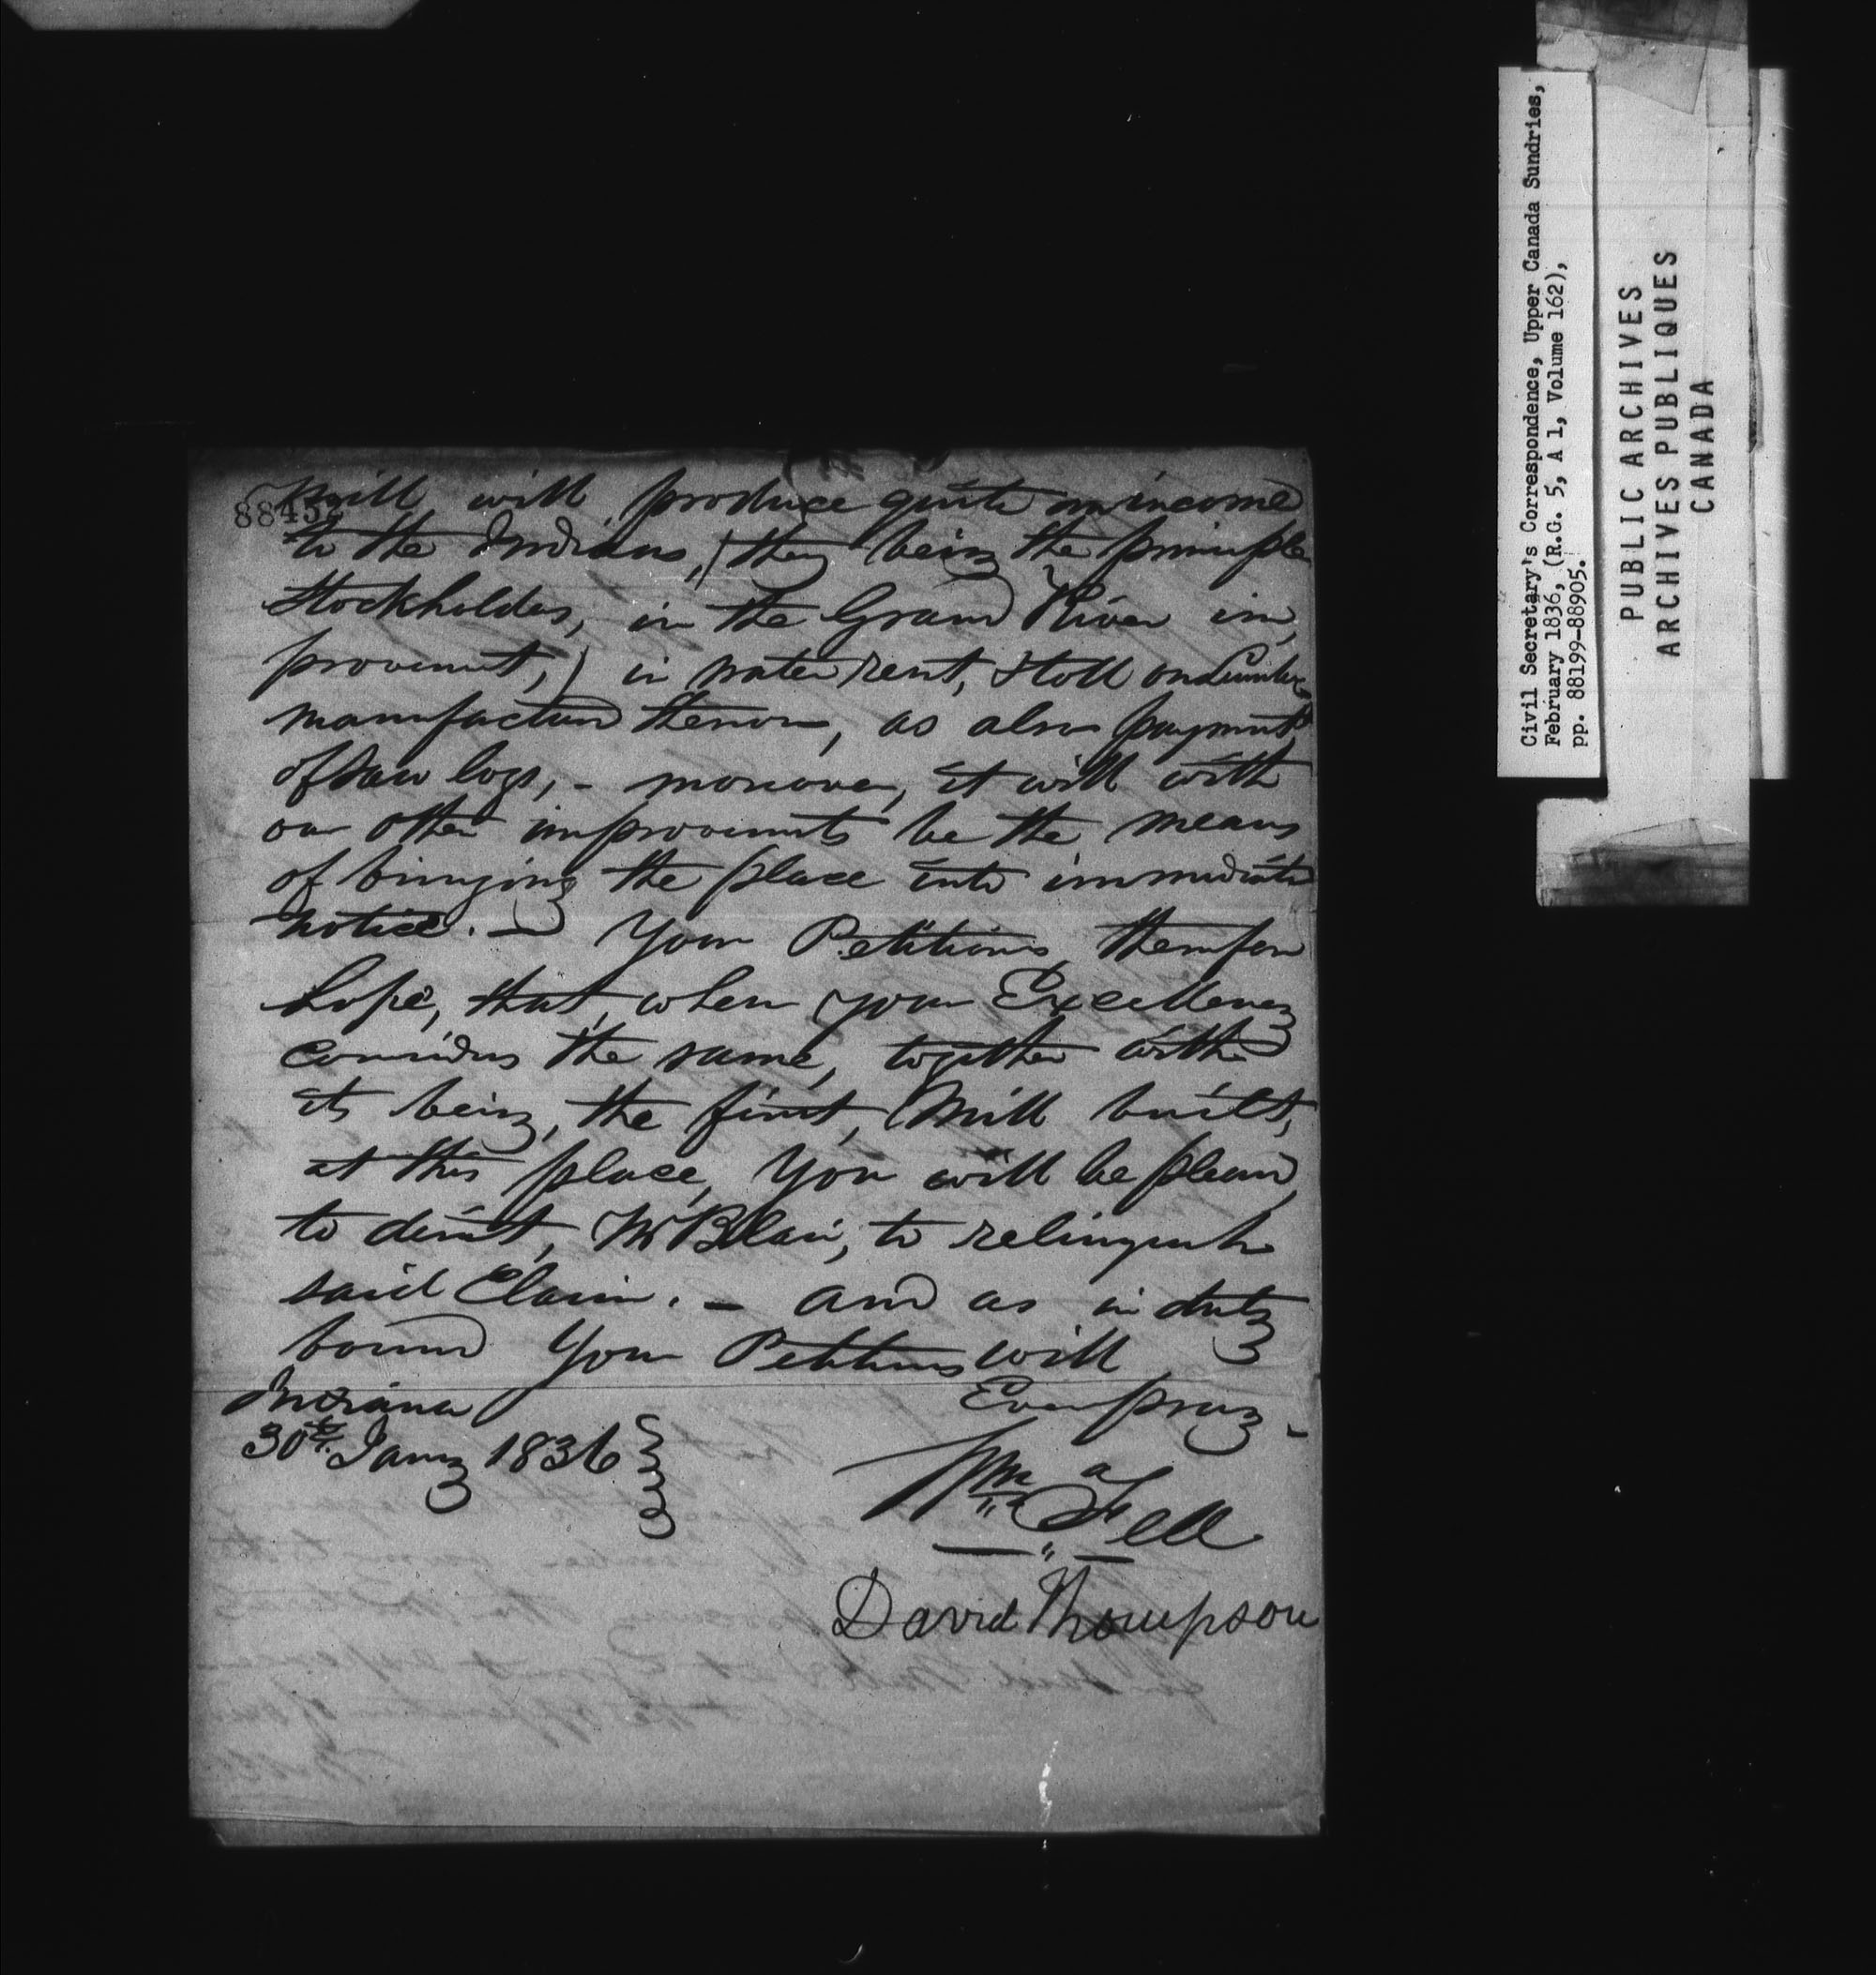 mill will produce quite an income
to the Indians, (they being the principle
Stockholders, in the Grand River im,
provement,) in water rent, & toll on Lumber
manufactured thereon, as also payment
of Saw logs, - moreover, it will with
our other improvements be the means
of bringing the place into immediate
notice. - Your Petitioners, therefore
hope, that, when your Excellency
considers the same, together with
its being, the first, Mill built,
at this place, You will be pleased,
to direct, Mr Blair, to relinquish
said Claim. - and as in duty
bound Your Petitioners will
Ever pray -
Indiana
30th Jany 1836
Wm a Fell
David Thompson
Civil Secretary's Correspondence, Upper Canada Sundries,
February 1836, (R.G. 5, A 1, Volume 162),
pp. 88199-88905.
PUBLIC ARCHIVES
ARCHIVES PUBLIQUES
CANADA